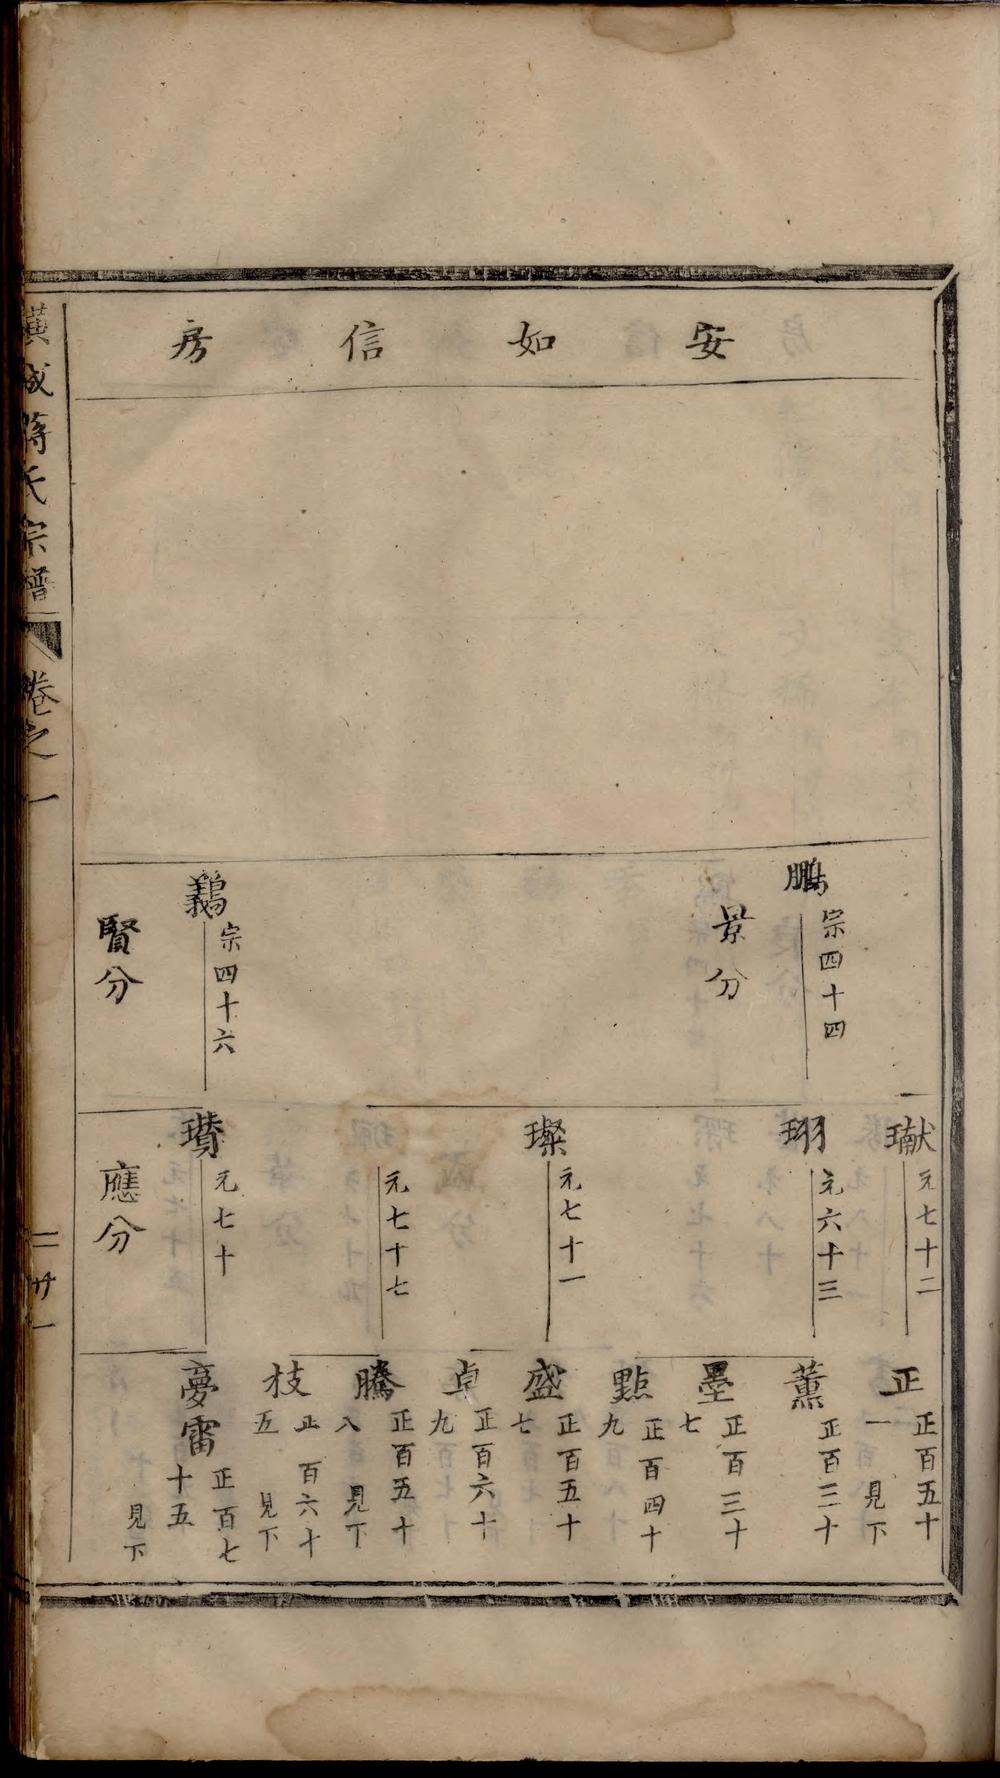 安如信房
鵬 宗四十四
景分
鵜 宗四十六
賢分
瓛 元七十二
珝 元六十三
璨 元七十一
元七十七
瓚 元七十
應分
正 正百五十一 見下
薫 正百二十
墨 正百三十七
點 正百四十九
盛 正百五十七
卓 正百六十九
騰 正百五十八 見下
枝 正百六十五 見下
夢雷 正百七十五 見下
蔣氏宗譜
卷之一
二 廿一